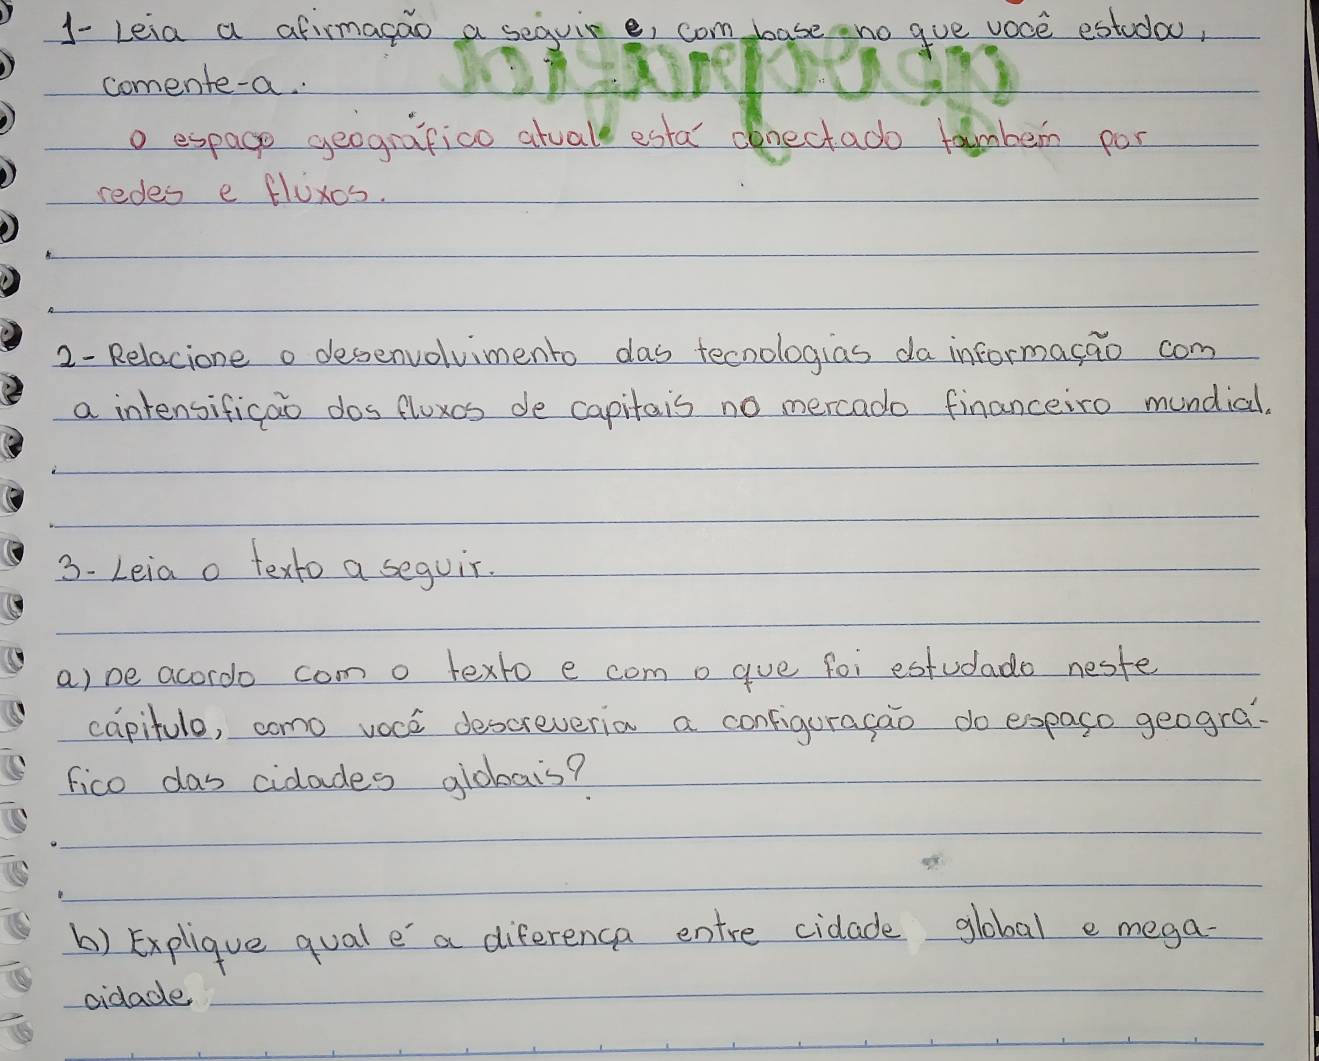 1- Leia a afirmação a seguir e, com base no que você estudou,
comente-a.
o espaço geográfico atual está conectado também por
redes e fluxos.
2- Relacione o desenvolvimento das tecnologias da informação com
a intensifição dos fluxos de capitais no mercado financeiro mundial.
3- Leia o texto a seguir.
a) De acordo com o texto e com o que foi estudado neste
cápitulo, como você descreveria a configuração do espaço geográ-
fico das cidades globais?
b) Explique qual é a diferença entre cidade global e mega-
cidade.